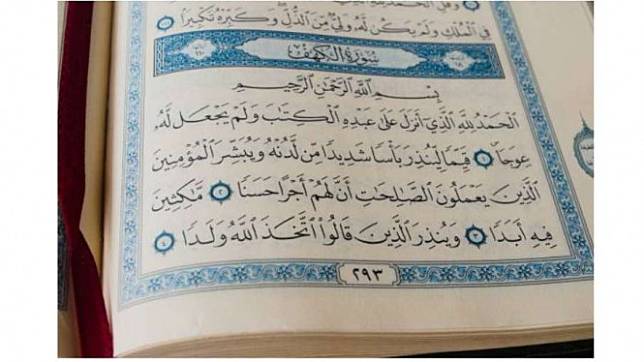 وَقُلِ الْحَمْدُ لِلَّهِ
فِي الْمُلْكِ وَلَمْ يَكُن لَّهُ وَلِيٌّ مِّنَ الذُّلِّ وَكَبِّرْهُ تَكْبِيرًا
سُورَةُ الْكَهْفِ
بِسْمِ اللَّهِ الرَّحْمَٰنِ الرَّحِيمِ
الْحَمْدُ لِلَّهِ الَّذِي أَنزَلَ عَلَىٰ عَبْدِهِ الْكِتَابَ وَلَمْ يَجْعَل لَّهُ
عِوَجًا ۝١ قَيِّمًا لِّيُنذِرَ بَأْسًا شَدِيدًا مِّن لَّدُنْهُ وَيُبَشِّرَ الْمُؤْمِنِينَ
الَّذِينَ يَعْمَلُونَ الصَّالِحَاتِ أَنَّ لَهُمْ أَجْرًا حَسَنًا ۝٢ مَّاكِثِينَ
فِيهِ أَبَدًا ۝٣ وَيُنذِرَ الَّذِينَ قَالُوا اتَّخَذَ اللَّهُ وَلَدًا ۝٤
٢٩٣